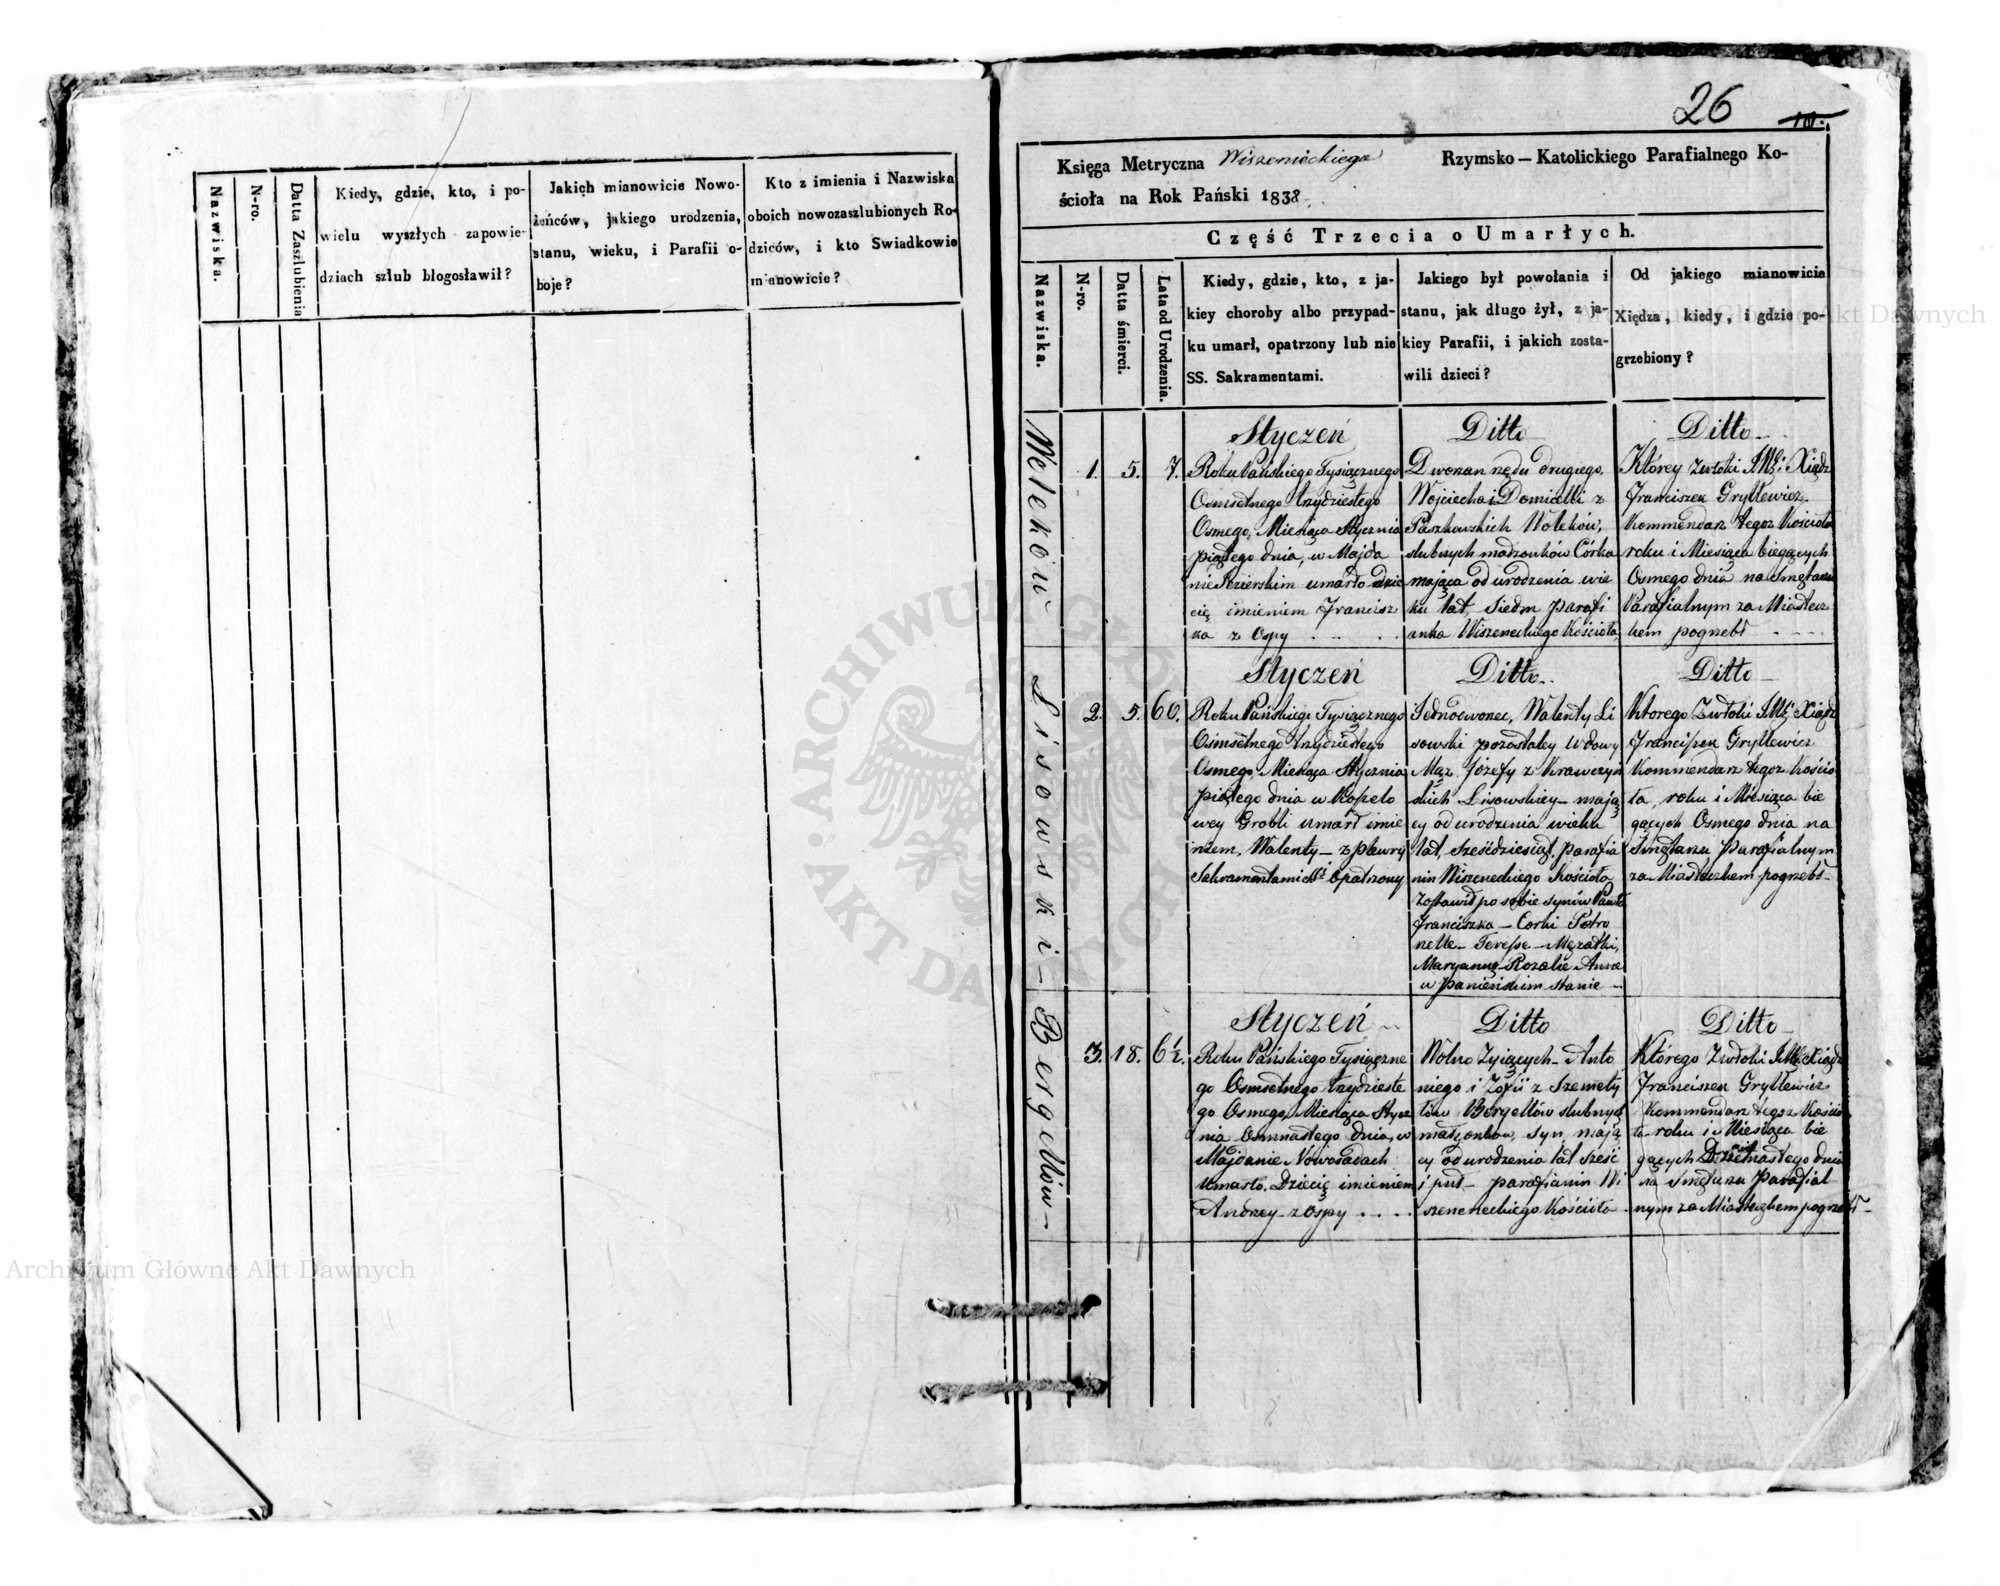 Nazwiska.
N-ro.
Datta Zaszlubienia
Kiedy, gdzie, kto, i po-
wielu wyszłych zapowie-
dziach szlub błogosławił?
Jakich mianowicie Nowo-
żeńców, jakiego urodzenia,
stanu, wieku, i Parafii o-
boje?
Kto z imienia i Nazwiska
oboich nowozaszlubionych Ro-
dziców, i kto Swiadkowie
mianowicie?
26
Księga Metryczna Wiszenieckiego Rzymsko – Katolickiego Parafialnego Ko-
ścioła na Rok Pański 1838
Część Trzecia o Umarłych.
Nazwiska.
N-ro.
Datta śmierci.
Lata od Urodzenia.
Kiedy, gdzie, kto, z ja-
kiey choroby albo przypad-
ku umarł, opatrzony lub nie
SS. Sakramentami.
Jakiego był powołania i
stanu, jak długo żył, z ja-
kiey Parafii, i jakich zosta-
wili dzieci?
Od jakiego mianowicie
Xiędza, kiedy, i gdzie po-
grzebiony?
Woleków
1. 5. 7.
Styczeń
Roku Pańskiego Tysiącznego
Osmsetnego trzydziestego
Osmego, Miesiąca Stycznia
piątego dnia, w Majda
nie umarło dzie
cię imieniem Francisz
ka z Ospy
Ditto
Dworzan rzędu drugiego,
Wojciecha i Domicelli z
Paszkowskich Woleków,
slubnych madzonków Córka
mająca od urodzenia wie
ku lat, siedm parafi
anka Wiszeneckiego Kościoła
Ditto
Którey zwłoki JM Xiądz
Franciszek Gryllewicz
Kommendarz tegoż Kościoła
roku i Miesiąca bieżących
Osmego dnia na Smętarzu
Parafialnym za Miastecz
kiem pogrzebł
Lisowski
2. 5. 60.
Styczeń
Roku Pańskiego Tysiącznego
Osmsetnego trzydziestego
Osmego, Miesiąca Stycznia
piątego dnia w Kopelo
wey Grobli umarł imie
niem, Walenty z plewry
Sakramentami Opatrzony
Ditto
Jednodworzec, Walenty Li
sowski pozostałey wdowy
Mąż Józefy z Krawczyń
skich Lisowskiey mają
cy od urodzenia wieku
lat, sześćdziesiąt, parafia
nin Wiszeneckiego Kościoła
zostawił po sobie synów Pawła
Franciszka – Corki Petro
nelle – Teresse – Mężatki,
Maryannę Rozalie Anne
w panieńskim stanie
Ditto
Ktorego Zwłoki JM Xiądz
Franciszek Gryllewicz
Kommendarz tegoż Kościo
ła, roku i Miesiąca bie
gących Osmego dnia na
Smętarzu Parafialnym
za Miasteczkiem pogrzebł
Bergellów
3. 18. 6½.
Styczeń
Roku Pańskiego Tysiączne
go Osmsetnego trzydzieste
go Osmego, Miesiąca Stycz
nia Osmnastego dnia, w
Majdanie Nowosadach
umarło. Dziecię imieniem
Andrzey z Ospy
Ditto
Wolno żyiących – Anto
niego i Zofii z Szemety
łów Bergellów slubnych
małzonkow, syn mają
cy od urodzenia lat sześć
i puł parafianin Wi
szeneckiego Kościoła
Ditto
Którego Zwłoki JM Xiądz
Franciszek Gryllewicz
Kommendarz tegoż Kościo
ła roku i Miesiąca bie
gących dnia
na Smętarzu Parafial
nym za Miasteczkiem pogrzebł
ARCHIWUM GŁÓWNE AKT DAWNYCH
Archiwum Główne Akt Dawnych
Archiwum Główne Akt Dawnych